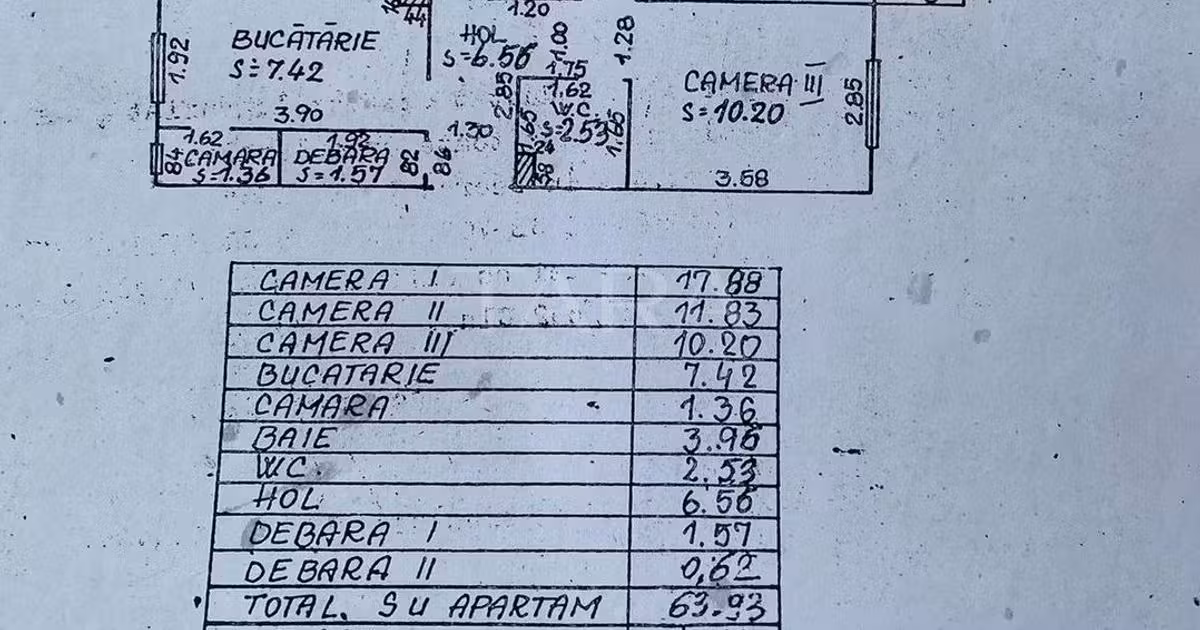 1.20
BUCĂTĂRIE
S=7.42
1.92
3.90
HOL
S=6.56
1.00
1.28
.75
2.85
1.62
W.C.
S=2.53
1.65
1.65
.24
CAMERA III
S=10.20
2.85
3.58
1.62
84
CAMARA
S=1.36
1.92
DEBARA
S=1.57
82
86
1.30
CAMERA I 17.88
CAMERA II 11.83
CAMERA III 10.20
BUCATARIE 7.42
CAMARA 1.36
BAIE 3.96
WC 2.53
HOL 6.56
DEBARA I 1.57
DEBARA II 0,62
TOTAL. SU APARTAM 63.93